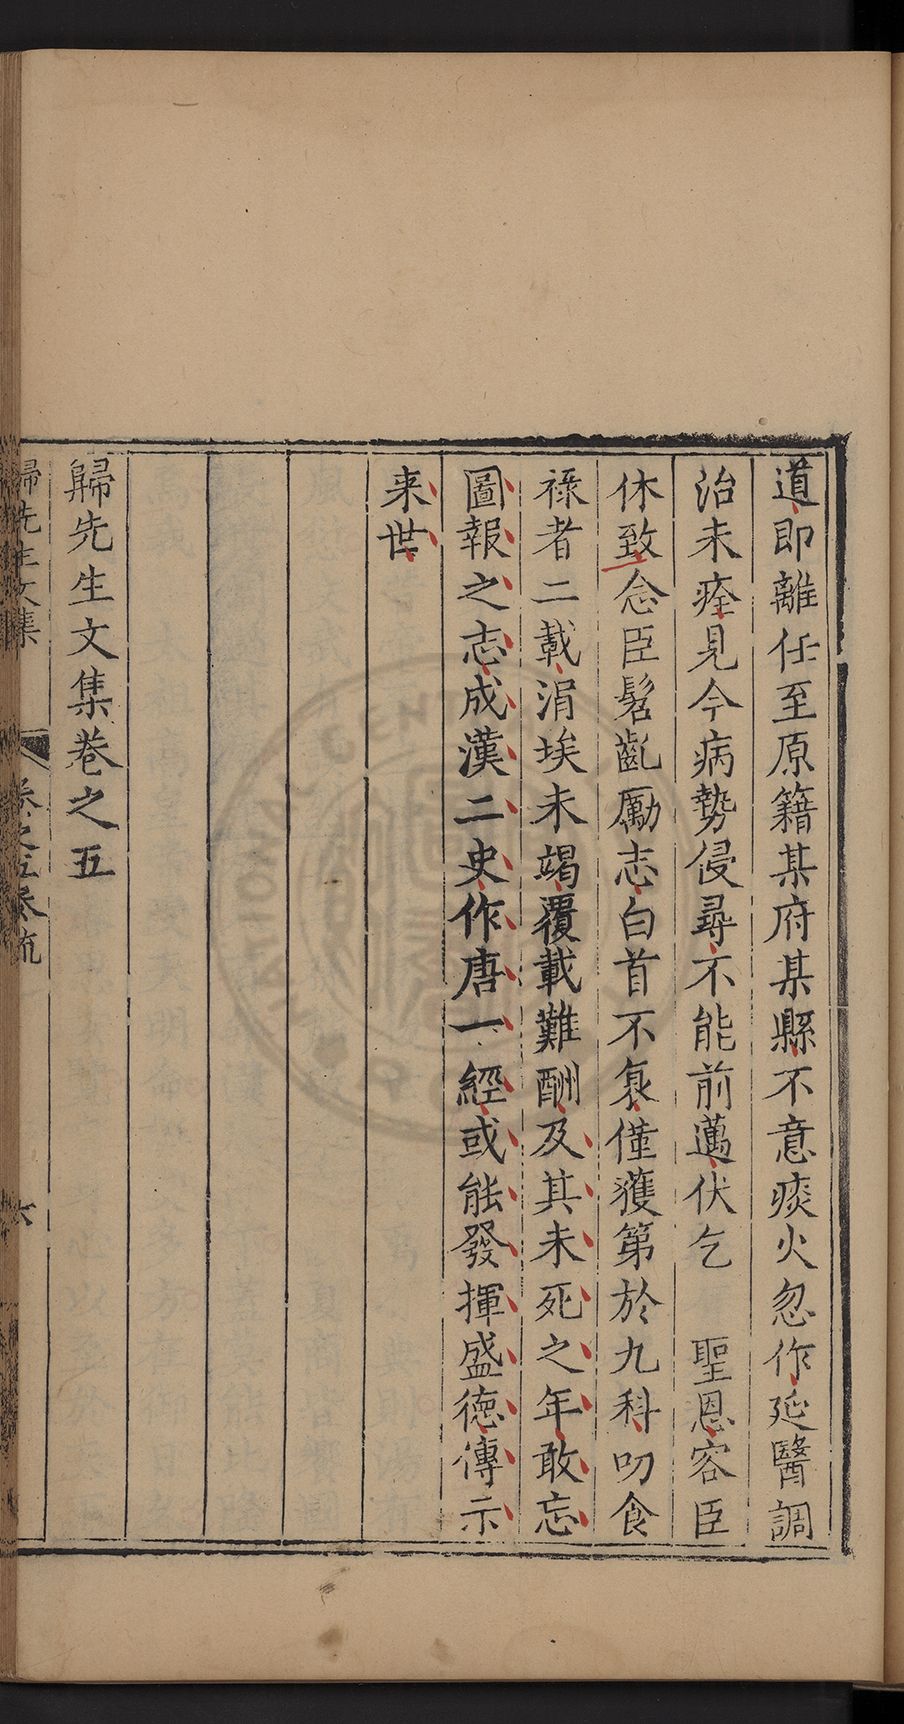 道即離任至原籍某府某縣不意痰火忽作延醫調
治未痊見今病勢侵尋不能前邁伏乞 聖恩容臣
休致念臣髫齔勵志白首不衰僅獲第於九科叨食
祿者二載涓埃未竭覆載難酬及其未死之年敢忘
圖報之志成漢二史作唐一經或能發揮盛徳傳示
来世
歸先生文集巻之五
歸先生文集 巻之五奏疏 六